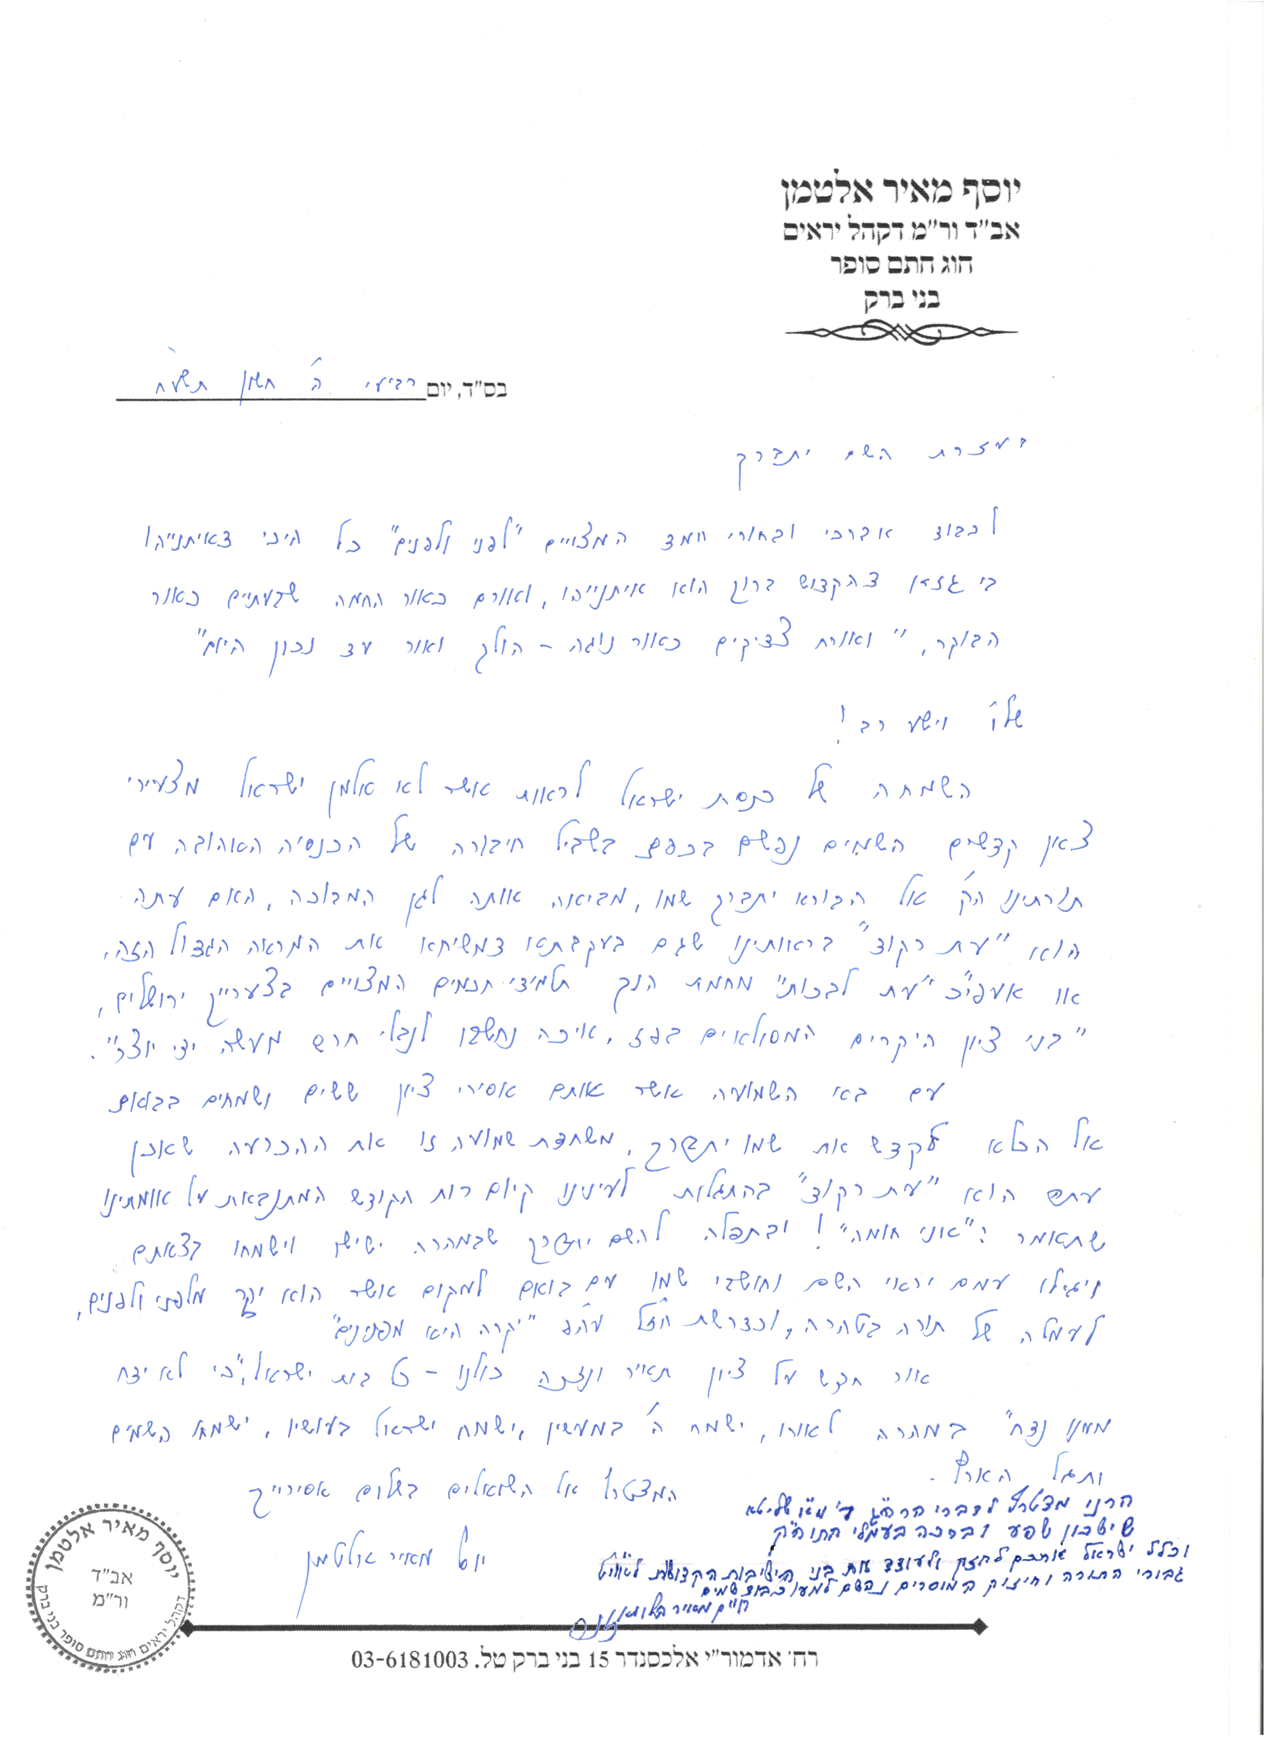 יוסף מאיר אלטמן
אב"ד ור"מ דקהל יראים
חוג חתם סופר
בני ברק
בס"ד, יום רביעי ה' חשון תשע"ח
בעזרת השם יתברך
לכבוד אברכי ובחורי חמד המצויים "לפני ולפנים" כל היכי דאיתנייהו
בי גנזא דהקדוש ברוך הוא איתנייהו, ואורם כאור החמה שבעתיים כאור
הבוקר, "ואורח צדיקים כאור נוגה - הולך ואור עד נכון היום"
שלו' וישע רב!
השמחה של כנסת ישראל לראות אשר לא אלמן ישראל מצעירי
צאן קדשים השמים נפשם בכפם בשביל חיבורה של הכנסיה האהובה עם
תורתינו הק' אל הבורא יתברך שמו, מביאה אותה לגן המבוכה, האם עתה
הוא "עת רקוד" בראותינו שגם בעקבתא דמשיחא את המראה הגדול הזה,
או אעפ"כ "עת לבכות" מחמת הנך תלמידי חכמים המצויים בצערייך ירושלים,
"בני ציון היקרים המסולאים בפז, איכה נחשבו לנבלי חרש מעשה ידי יוצר".
עם באי השמועה אשר אותם אסירי ציון ששים ושמחים בבואם
אל הכלא לקדש את שמו יתברך, משחדת שמועה זו את ההכרעה שאכן
עתה הוא "עת רקוד" בהתגלות לעינינו קיום רוח הקודש המתנבאת על אומתינו
שתאמר: "אני חומה"! ובתפלה להשם יתברך שבמהרה ישישו וישמחו בצאתם
ויגילו עמם יראי השם וחושבי שמו עם בואם למקום אשר הוא יקר מלפני ולפנים,
לעמלה של תורה בטהרה, וכדרשת חז"ל עה"פ "יקרה היא מפנינים"
אור חדש על ציון תאיר ונזכה כולנו - כל בית ישראל, "כי לא ידח
ממנו נדח" במהרה לאורו, ישמח ה' במעשיו, ישמח ישראל בעושיו, ישמחו השמים
ותגל הארץ.
המצטרף אל השואלים בשלום אסירייך
יוסף מאיר אלטמן
הרני מצטרף לדברי הרה"ג ר' שליטא
שישכון שפע וברכה בעמלי התוה"ק
וכלל ישראל לחזק ולעודד את בני הישיבות הקדושות
גבורי התורה וחיזוק המוסרים נפשם למען כבוד שמים
חיים מאיר
יוסף מאיר אלטמן
אב"ד
ור"מ
דקהל יראים חוג חתם סופר בני ברק
רח' אדמור"י אלכסנדר 15 בני ברק טל. 03-6181003